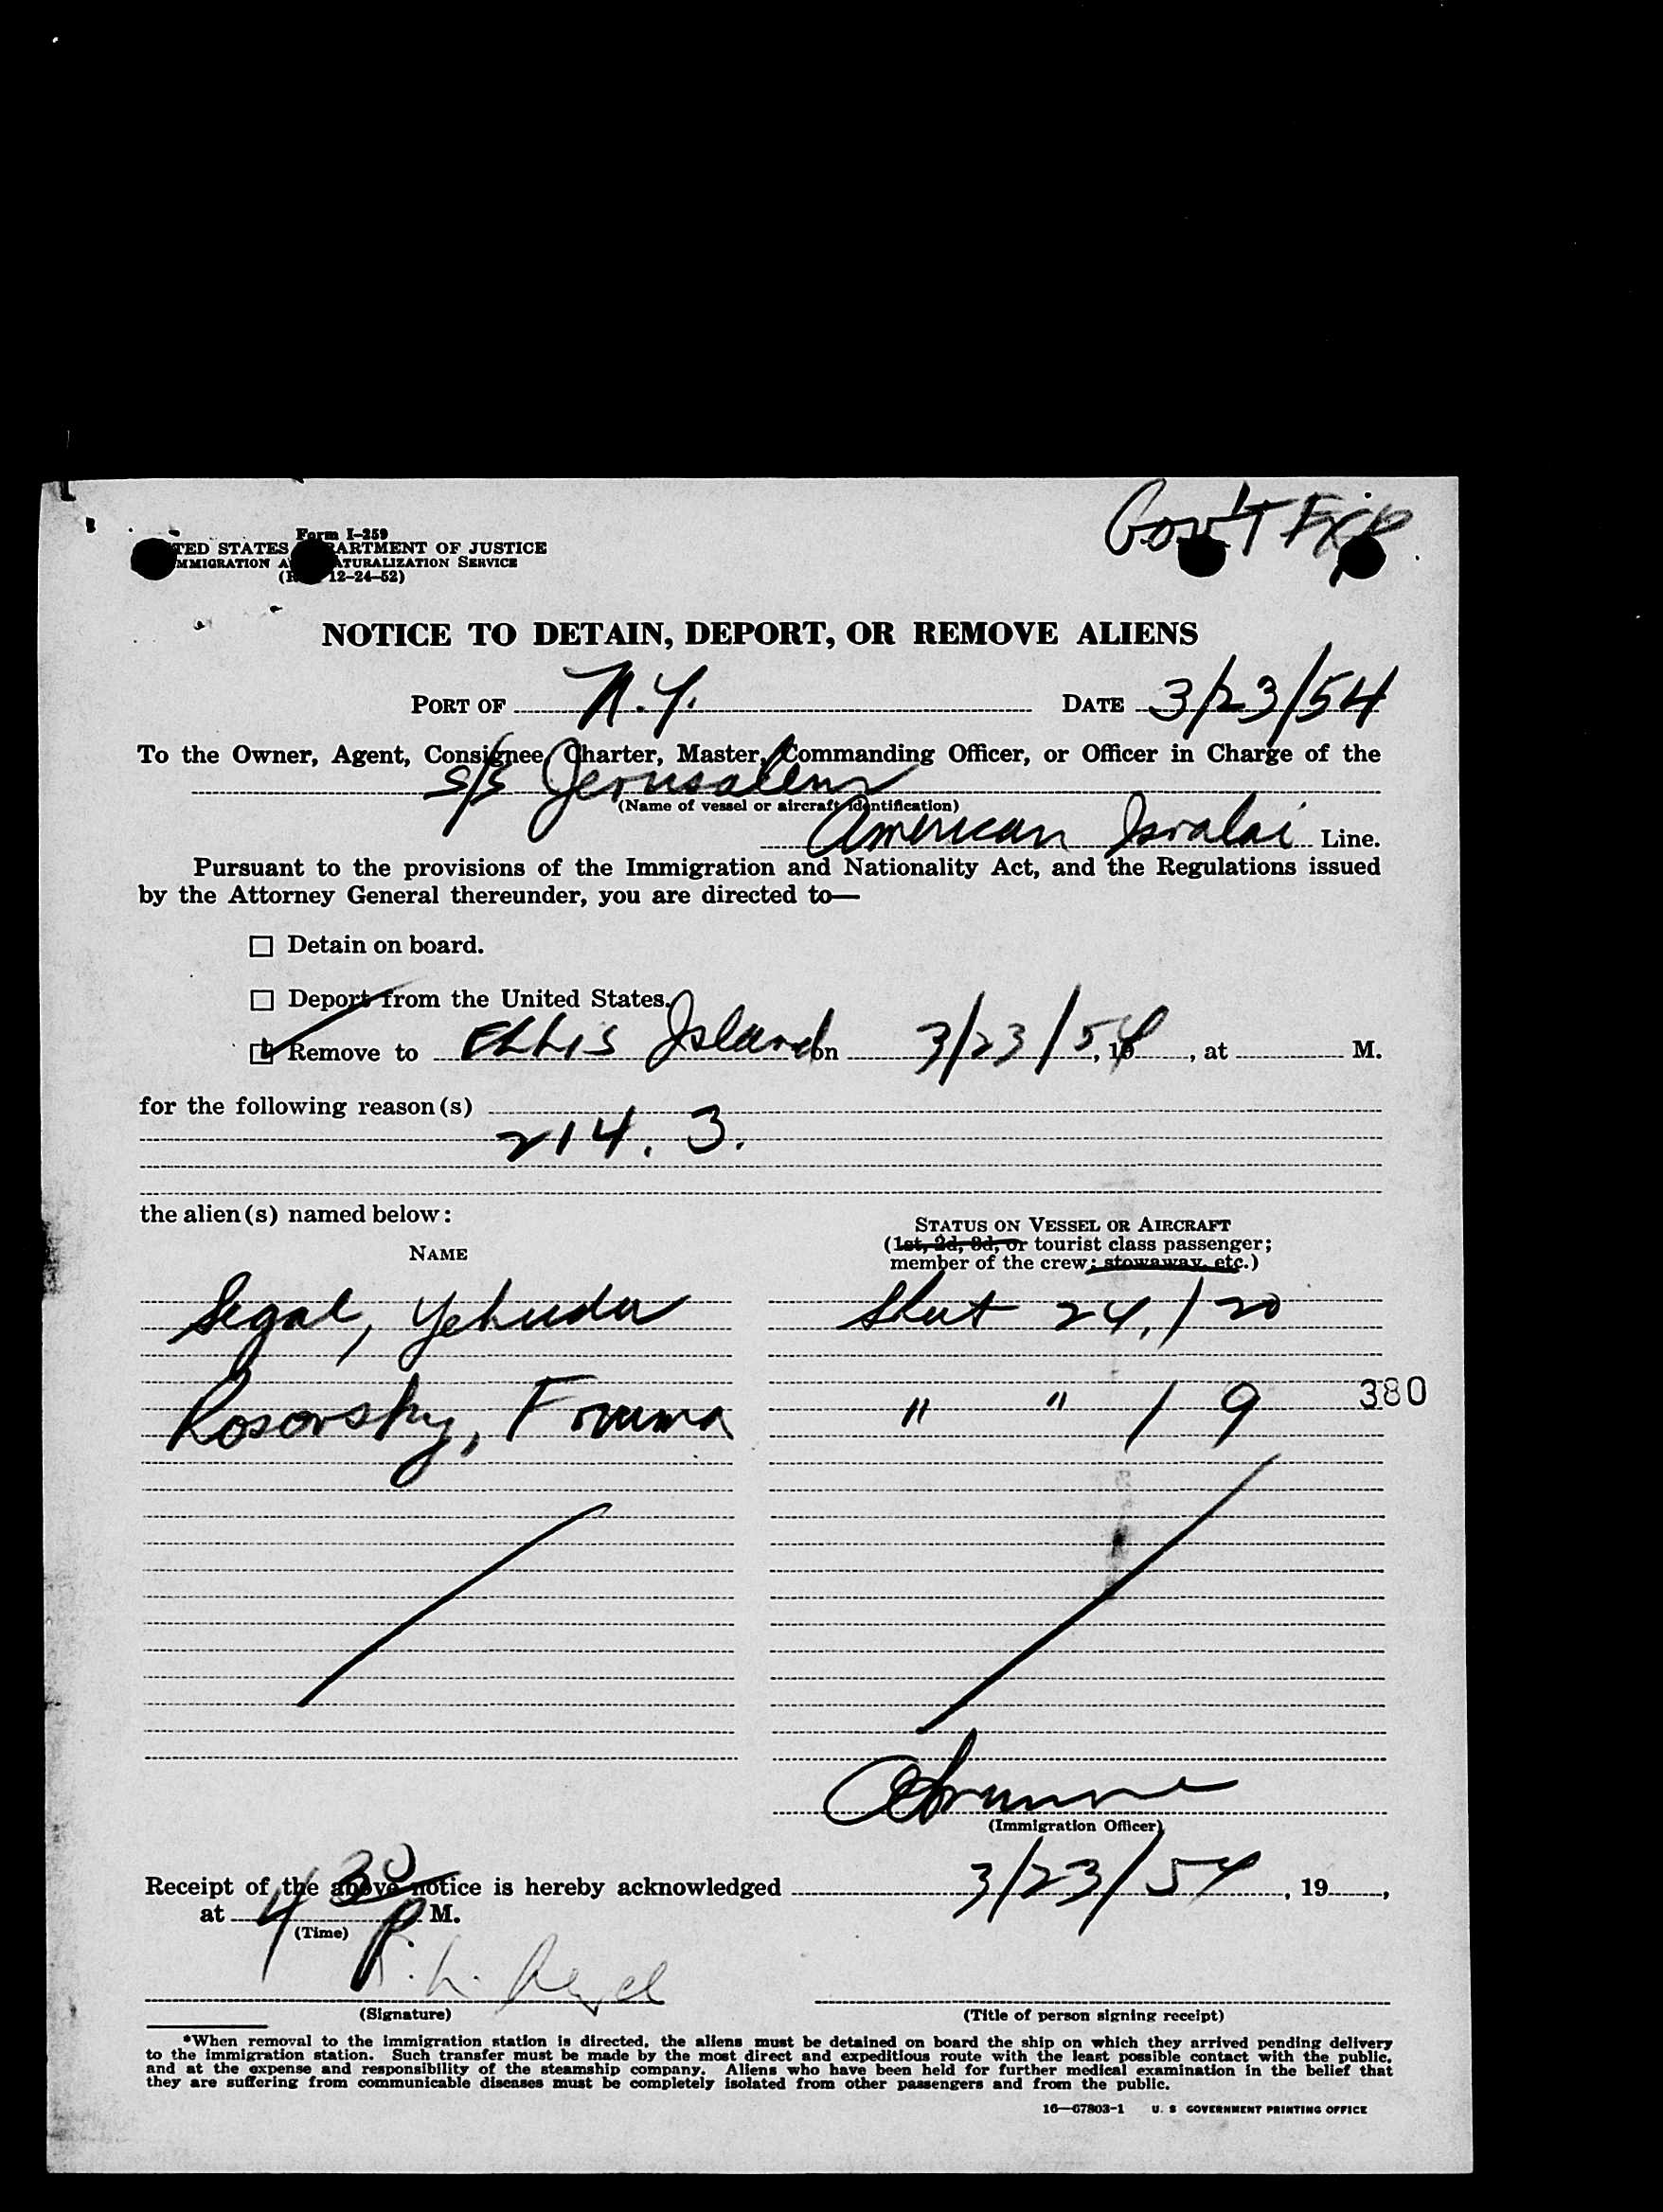 Gov't Exp.
Form I-259
TED STATES ARTMENT OF JUSTICE
MMIGRATION A ATURALIZATION SERVICE
(R 12-24-52)
NOTICE TO DETAIN, DEPORT, OR REMOVE ALIENS
PORT OF N.Y. DATE 3/23/54
To the Owner, Agent, Consignee, Charter, Master, Commanding Officer, or Officer in Charge of the
S/S Jerusalem
(Name of vessel or aircraft identification)
American Isralai Line.
Pursuant to the provisions of the Immigration and Nationality Act, and the Regulations issued
by the Attorney General thereunder, you are directed to—
Detain on board.
Deport from the United States.
Remove to Ellis Island on 3/23/54, 19, at M.
for the following reason(s)
214. 3.
the alien(s) named below:
STATUS ON VESSEL OR AIRCRAFT
(1st, 2d, 3d, or tourist class passenger;
NAME
member of the crew; stowaway, etc.)
Segal, Yehuda Sheet 24, / 20
Rosovsky, Fruma " " / 9 380
(Immigration Officer)
Receipt of the above notice is hereby acknowledged 3/23/54, 19,
at 4 30 P M.
(Time)
(Signature) (Title of person signing receipt)
*When removal to the immigration station is directed, the aliens must be detained on board the ship on which they arrived pending delivery
to the immigration station. Such transfer must be made by the most direct and expeditious route with the least possible contact with the public,
and at the expense and responsibility of the steamship company. Aliens who have been held for further medical examination in the belief that
they are suffering from communicable diseases must be completely isolated from other passengers and from the public.
16—67803-1 U. S GOVERNMENT PRINTING OFFICE